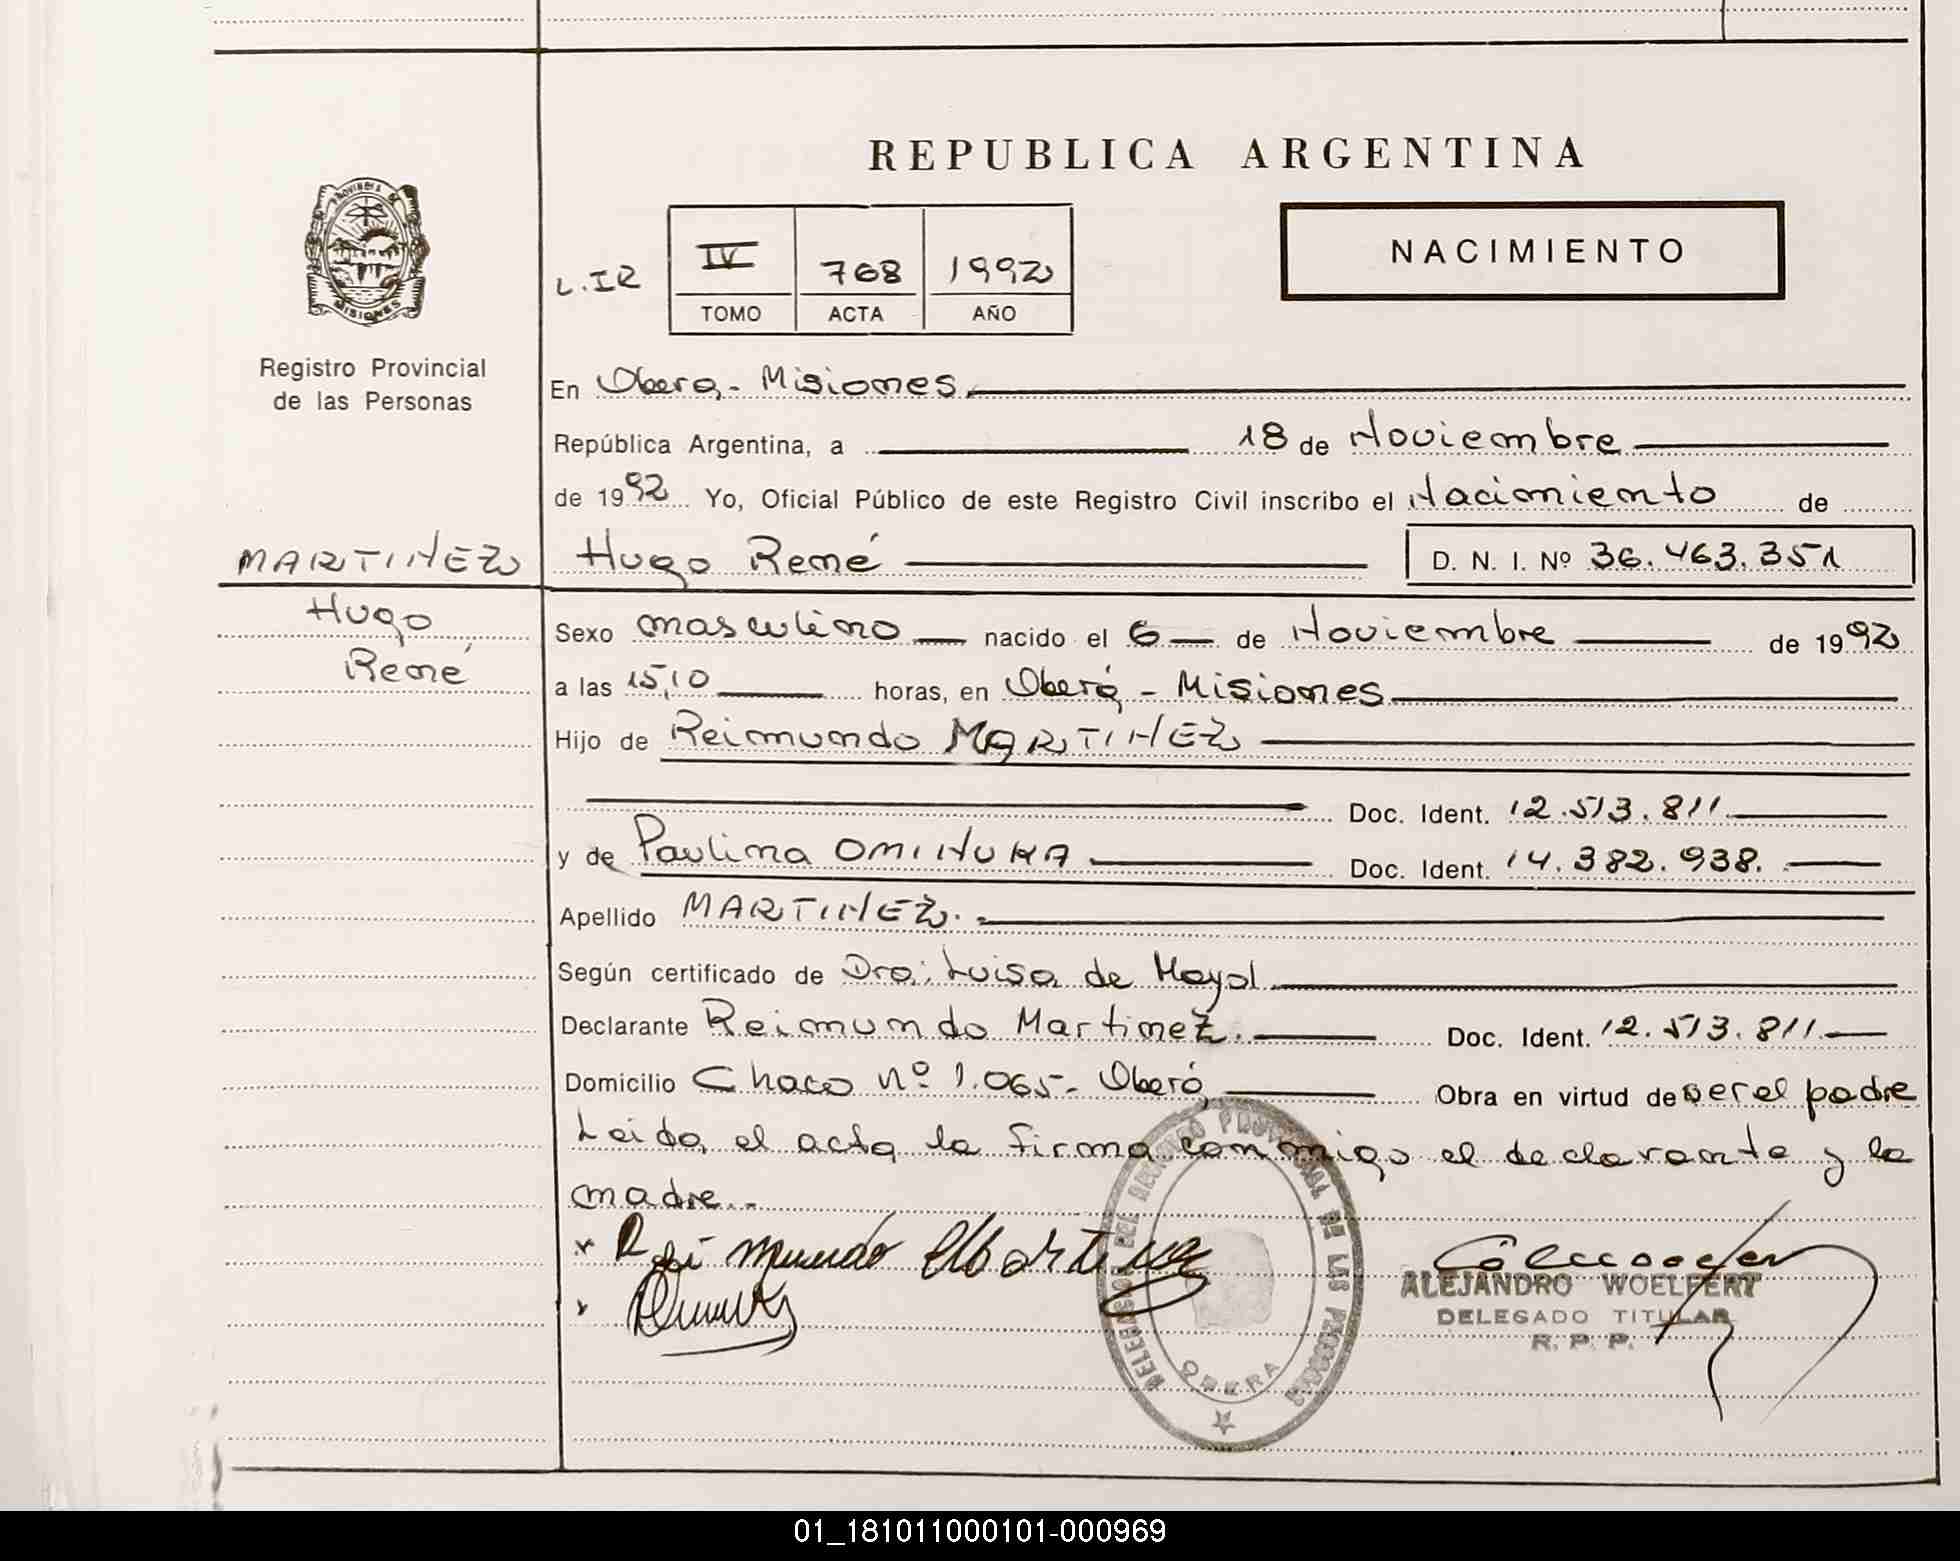 REPUBLICA ARGENTINA
PROVINCIA DE MISIONES
Registro Provincial
de las Personas
NACIMIENTO
L.IR
IV 768 1992
TOMO ACTA AÑO
En Obera,- Misiones.
República Argentina, a 18 de Noviembre
de 1992 Yo, Oficial Público de este Registro Civil inscribo el Nacimiento de
MARTINEZ Hugo René D. N. I. Nº 36.463.351
Hugo
René
Sexo masculino nacido el 6 de Noviembre de 1992
a las 15,10 horas, en Oberá - Misiones
Hijo de Reimundo MARTINEZ
Doc. Ident. 12.513.811
y de Paulina Doc. Ident. 14.382.938.
Apellido MARTINEZ.
Según certificado de Dra: Luisa de Mayol
Declarante Reimundo Martinez. Doc. Ident. 12.513.811
Domicilio Chaco nº 1.065- Oberá Obra en virtud de ser el padre
Leida el acta la firma conmigo el declarante y la
madre.-
Reimundo Martinez
ALEJANDRO WOELFERT
DELEGADO TITULAR
R. P. P.
DEL REGISTRO PROVINCIAL DE LAS PERSONAS
OBERA
01_181011000101-000969